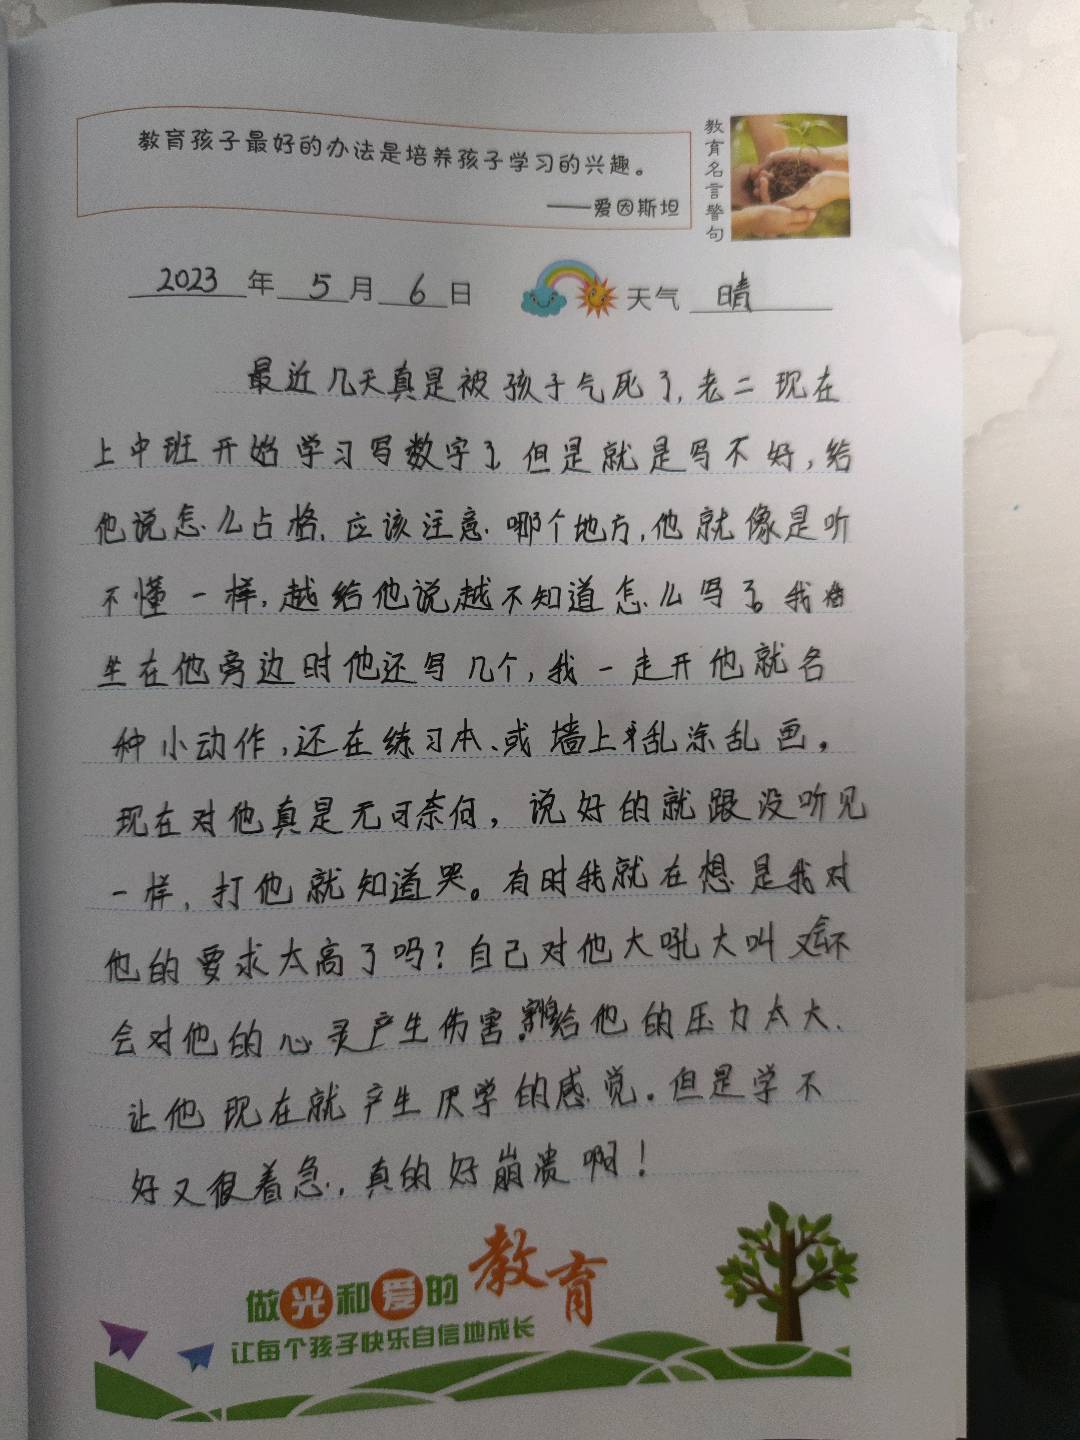 教育孩子最好的办法是培养孩子学习的兴趣。
——爱因斯坦
教育名言警句
2023年5月6日 天气 晴
最近几天真是被孩子气死了,老二现在
上中班开始学习写数字了,但是就是写不好,给
他说怎么占格,应该注意哪个地方,他就像是听
不懂一样,越给他说越不知道怎么写了。我
坐在他旁边时他还写几个,我一走开他就各
种小动作,还在练习本、或墙上乱涂乱画。
现在对他真是无可奈何,说好的就跟没听见
一样,打他就知道哭。有时我就在想是我对
他的要求太高了吗?自己对他大吼大叫会不
会对他的心灵产生伤害。给他的压力太大、
让他现在就产生厌学的感觉。但是学不
好又很着急,真的好崩溃啊!
做光和爱的教育
让每个孩子快乐自信地成长